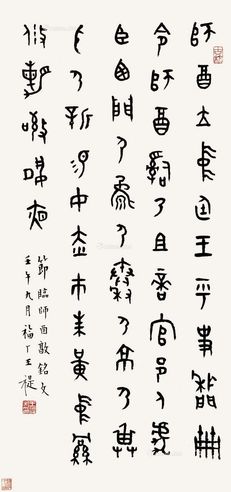 師酉立中廷王乎史牆冊
令師酉嗣乃且啻官邑人虎
臣西門尸尸秦尸京尸
身尸新易女赤市朱黃中
攸勒敬夙夜
節臨師酉敦銘文
壬午九月福厂王禔